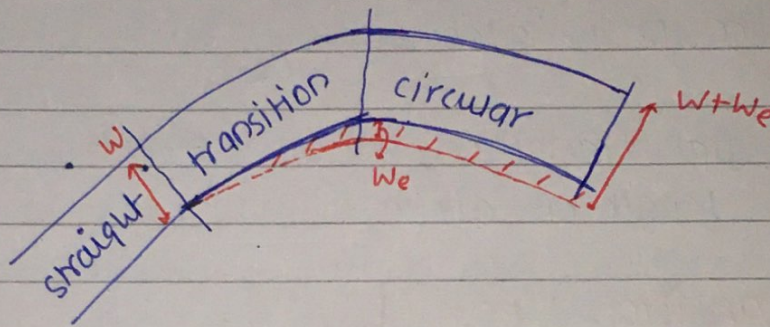 straight
W
transition
circular
We
W+We